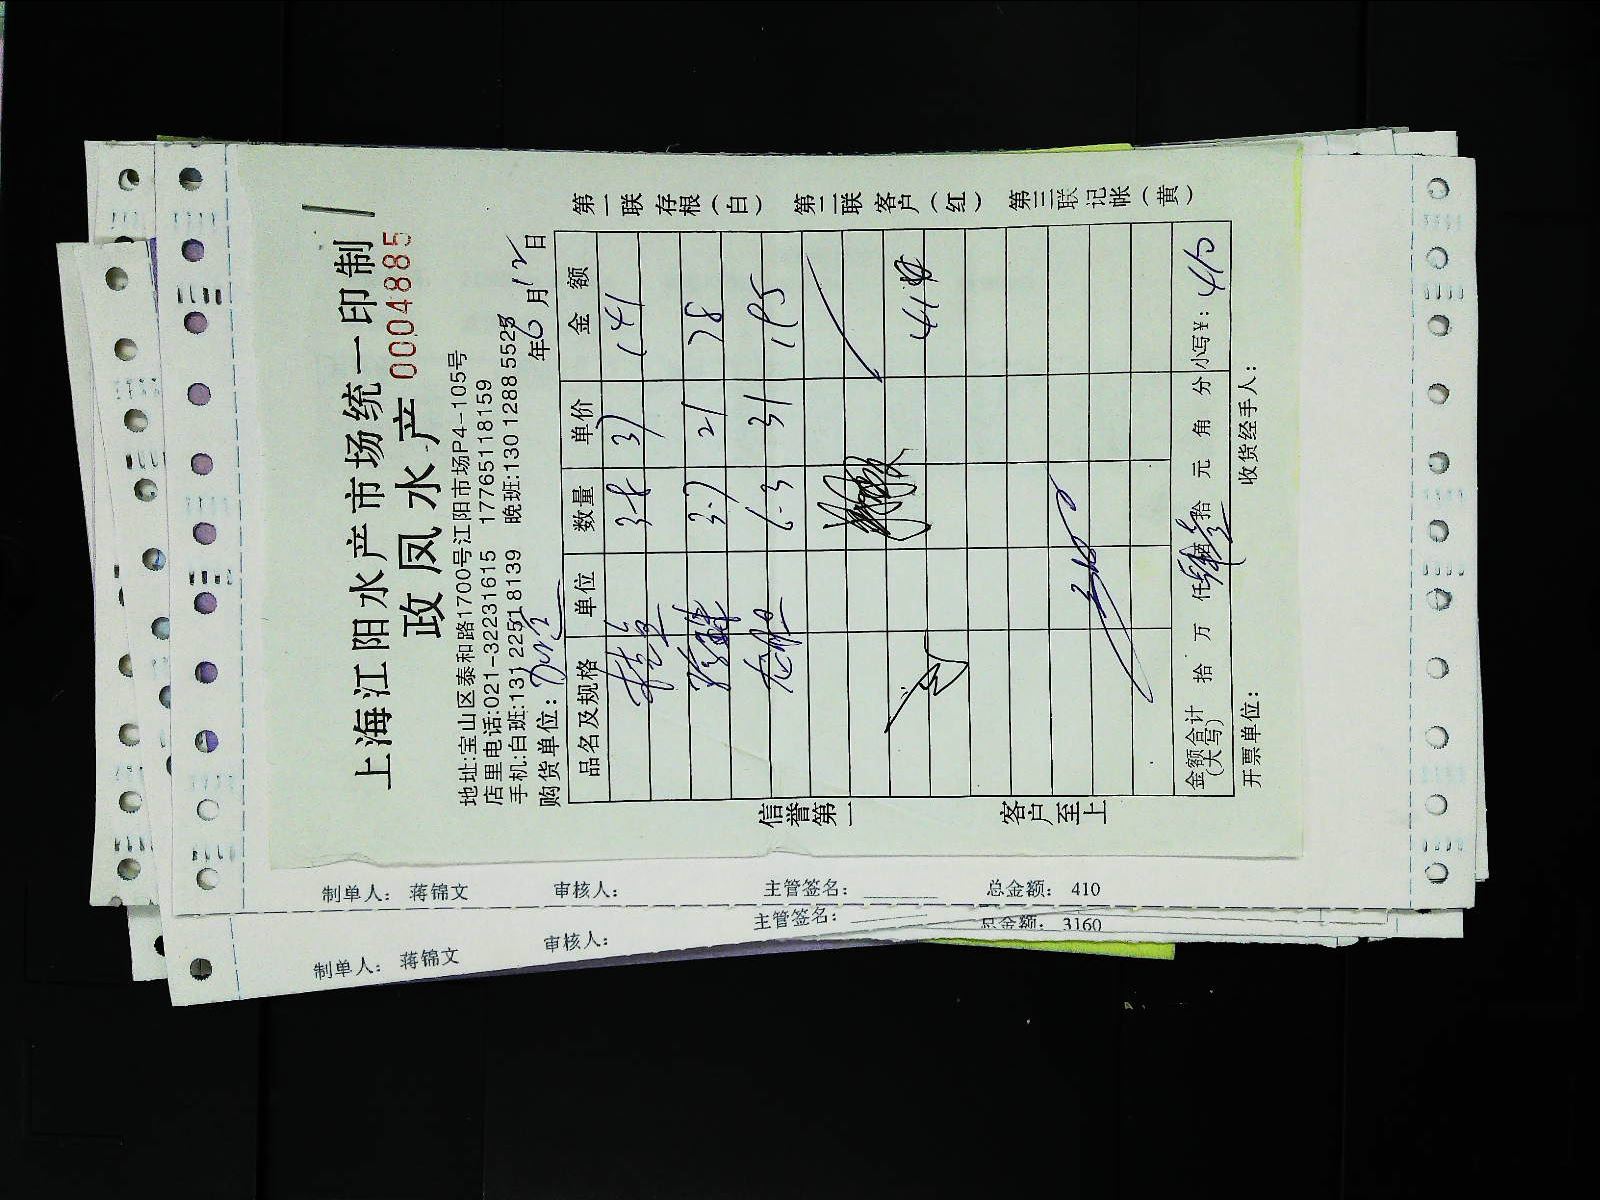 上海江阳水产市场统一印制
政凤水产 0004885
地址:宝山区泰和路1700号江阳市场P4-105号
店里电话:021-32231615 17765118159
手机:白班:131 2251 8139 晚班:130 1288 5525
购货单位: 年6月12日
品名及规格 单位 数量 单价 金额
3-8 37 141
3-7 21 78
6-3 31 195
414
金额合计(大写) 拾 万 仟 佰 拾 元 角 分 小写¥: 410
开票单位: 收货经手人:
第一联存根(白) 第二联客户(红) 第三联记帐(黄)
信誉第一 客户至上
制单人: 蒋锦文 审核人: 主管签名: 总金额: 410
制单人: 蒋锦文 审核人: 主管签名: 总金额: 3160